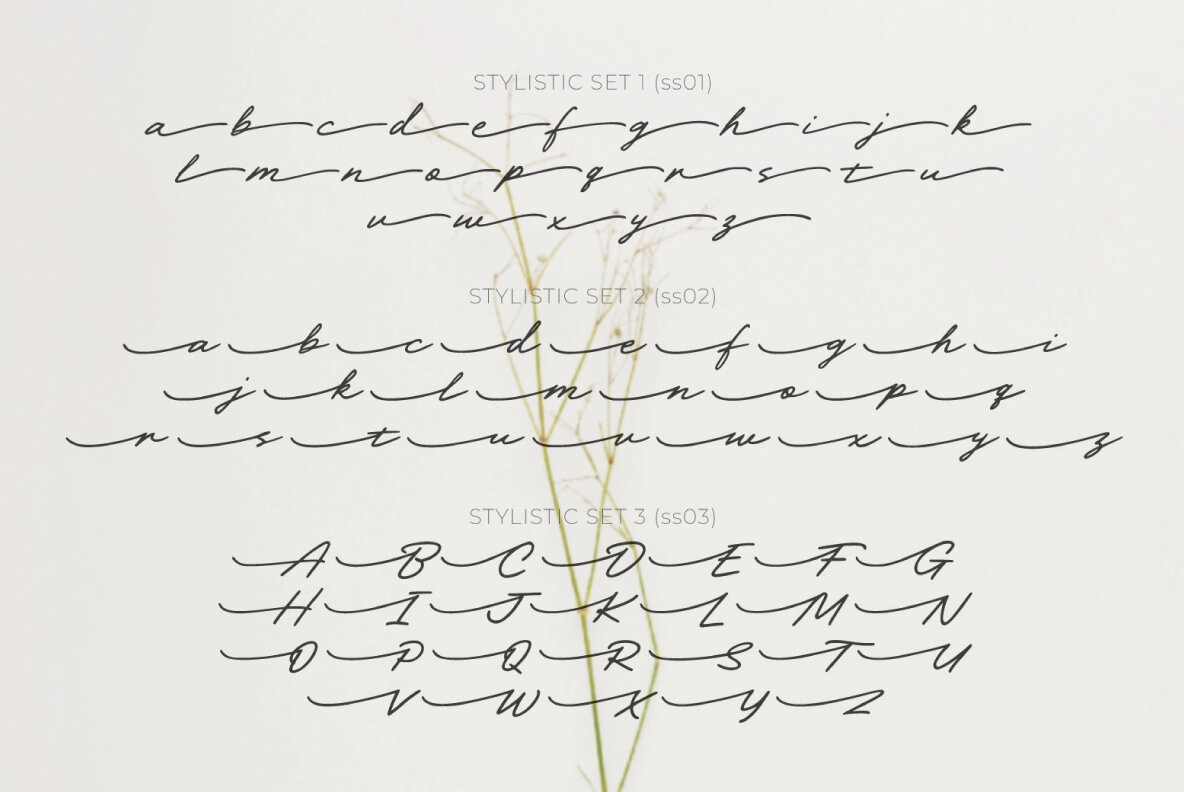 STYLISTIC SET 1 (ss01)
a b c d e f g h i j k
l m n o p q r s t u
v w x y z
STYLISTIC SET 2 (ss02)
a b c d e f g h i
j k l m n o p q
r s t u v w x y z
STYLISTIC SET 3 (ss03)
A B C D E F G
H I J K L M N
O P Q R S T U
V W X Y Z